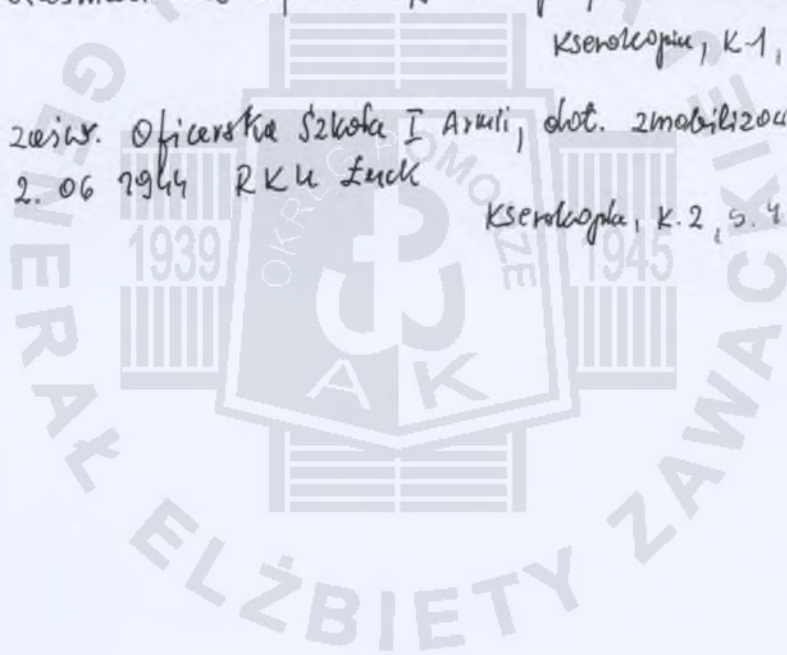 Kserokopia, K-1,
zaśw. Oficerska Szkoła I Armii, dot. zmobilizow
2. 06 1944 RKU Łuck
Kserokopia, K.2, s. 4
OKRĘG POMORZE
1939 1945
AK
GENERAŁ ELŻBIETY ZAWACKIEJ